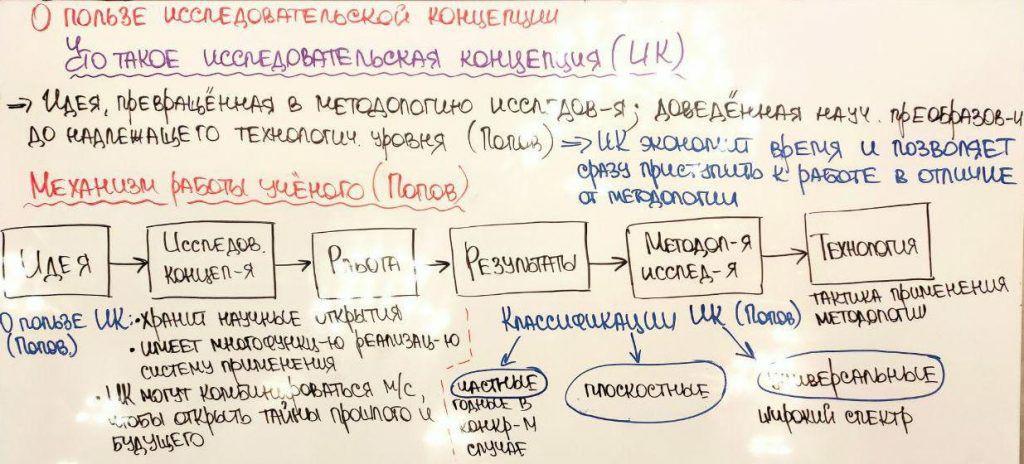 О ПОЛЬЗЕ ИССЛЕДОВАТЕЛЬСКОЙ КОНЦЕПЦИИ
ЧТО ТАКОЕ ИССЛЕДОВАТЕЛЬСКАЯ КОНЦЕПЦИЯ (ИК)
⇒ ИДЕЯ, ПРЕВРАЩЁННАЯ В МЕТОДОЛОГИЮ ИССЛЕДОВ-Я; ДОВЕДЁННАЯ НАУЧ. ПРЕОБРАЗОВ-И
ДО НАДЛЕЖАЩЕГО ТЕХНОЛОГИЧ. УРОВНЯ (ПОПОВ)
⇒ ИК ЭКОНОМИТ ВРЕМЯ И ПОЗВОЛЯЕТ
СРАЗУ ПРИСТУПИТЬ К РАБОТЕ В ОТЛИЧИЕ
ОТ МЕТОДОЛОГИИ
МЕХАНИЗМ РАБОТЫ УЧЁНОГО (ПОПОВ)
ИДЕЯ → ИССЛЕДОВ. КОНЦЕП-Я → РАБОТА → РЕЗУЛЬТАТЫ → МЕТОДОЛ-Я ИССЛЕД-Я → ТЕХНОЛОГИЯ
ТАКТИКА ПРИМЕНЕНИЯ
МЕТОДОЛОГИИ
О ПОЛЬЗЕ ИК:
(ПОПОВ)
• ХРАНИТ НАУЧНЫЕ ОТКРЫТИЯ
• ИМЕЕТ МНОГОФУНКЦ-Ю РЕАЛИЗАЦ-Ю
СИСТЕМУ ПРИМЕНЕНИЯ
• ИК МОГУТ КОМБИНИРОВАТЬСЯ М/С,
ЧТОБЫ ОТКРЫТЬ ТАЙНЫ ПРОШЛОГО И
БУДУЩЕГО
КЛАССИФИКАЦИИ ИК (ПОПОВ)
ЧАСТНЫЕ
ГОДНЫЕ В
КОНКР-М
СЛУЧАЕ
ПЛОСКОСТНЫЕ
УНИВЕРСАЛЬНЫЕ
ШИРОКИЙ СПЕКТР